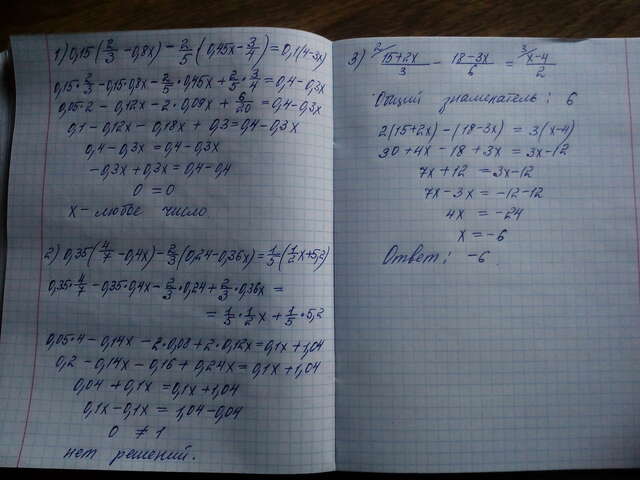 1) 0,15(2/3 - 0,8x) - 2/5(0,45x - 3/4) = 0,1(4-3x)
0,15·2/3 - 0,15·0,8x - 2/5·0,45x + 2/5·3/4 = 0,4-0,3x
0,05·2 - 0,12x - 2·0,09x + 6/20 = 0,4-0,3x
0,1 - 0,12x - 0,18x + 0,3 = 0,4-0,3x
0,4-0,3x = 0,4-0,3x
-0,3x+0,3x = 0,4-0,4
0 = 0
x - любое число
2) 0,35(4/7 - 0,4x) - 2/3(0,24-0,36x) = 1/5(1/2x+5,2)
0,35·4/7 - 0,35·0,4x - 2/3·0,24 + 2/3·0,36x =
= 1/5·1/2x + 1/5·5,2
0,05·4 - 0,14x - 2·0,08 + 2·0,12x = 0,1x + 1,04
0,2 - 0,14x - 0,16 + 0,24x = 0,1x + 1,04
0,04 + 0,1x = 0,1x + 1,04
0,1x - 0,1x = 1,04 - 0,04
0 ≠ 1
нет решений.
3) 2/ 15+2x/3 - 18-3x/6 = 3/ x-4/2
Общий знаменатель: 6
2(15+2x) - (18-3x) = 3(x-4)
30 + 4x - 18 + 3x = 3x-12
7x + 12 = 3x-12
7x - 3x = -12-12
4x = -24
x = -6
Ответ: -6.